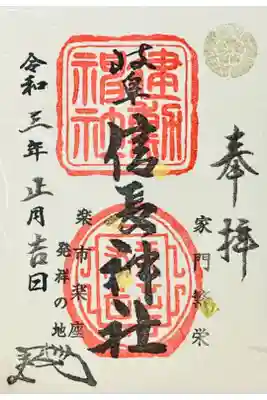 奉拝
家門繁栄
岐阜信長神社
楽市楽座
発祥の地
令和三年正月吉日